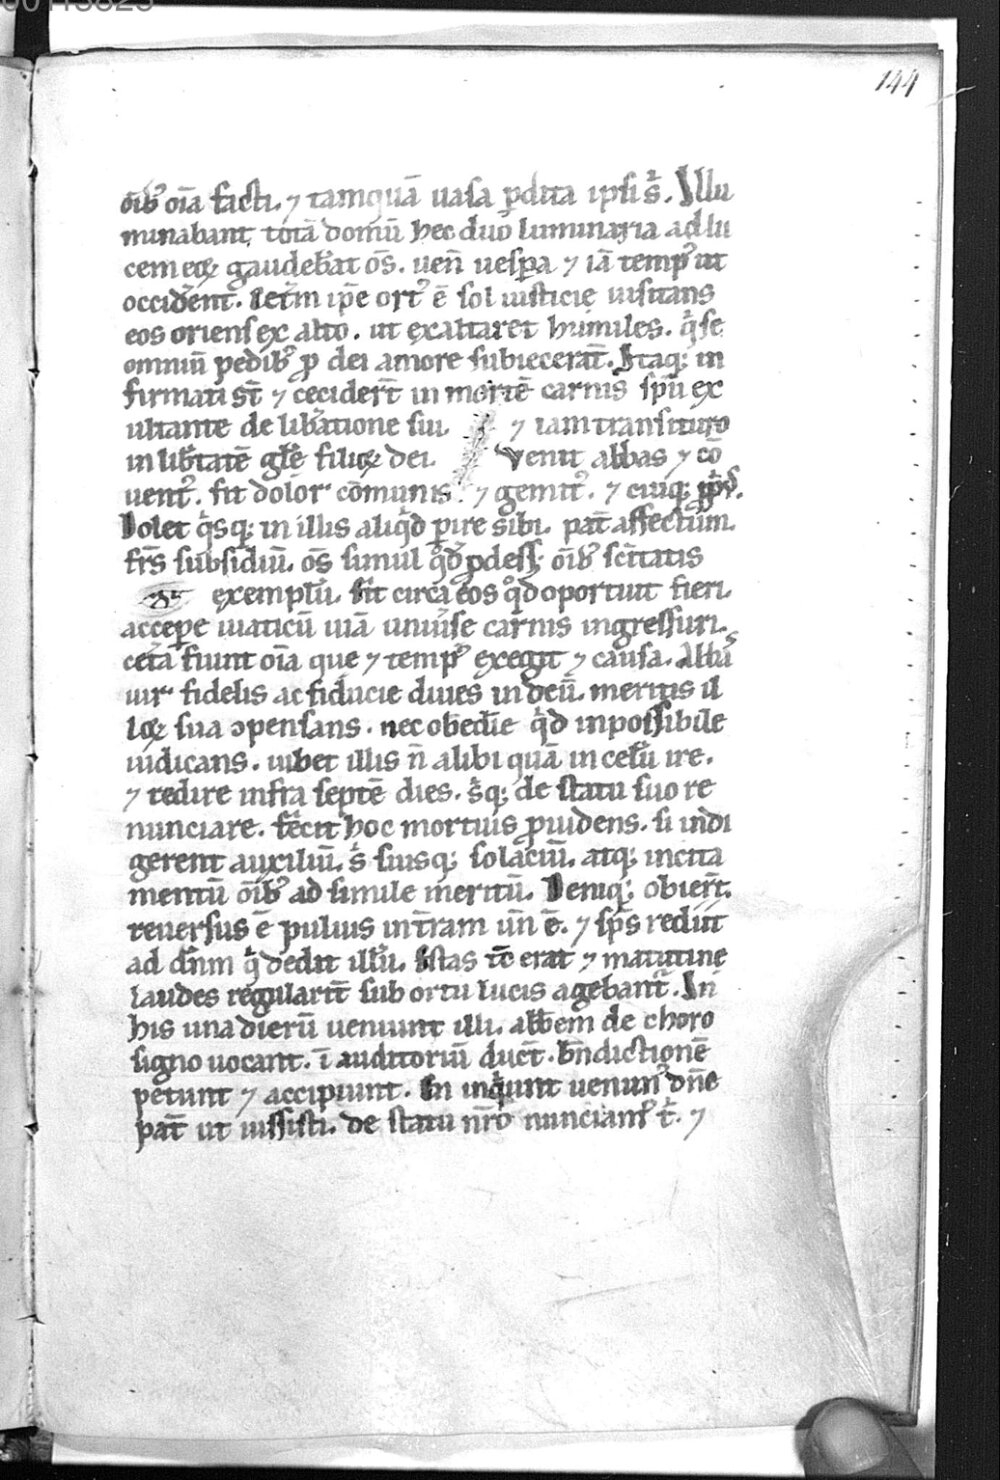 144
oīb' oīa facti. ⁊ tamquā uasa ꝑdita ipsi s̄. Illu
minabant totā domū hec duo luminaria ad lu
cem eoꝝ gaudeb̄at os̄. uen̄ uespa ⁊ iā temp' ut
occiderent. Et̄m ip̄e ort' ē sol iusticię uisitans
eos oriens ex alto. ut exaltaret humiles. q̄ se
omniū pedib' ꝓ dei amore subiecerat̄. Itaq; in
firmati st̄ ⁊ cecidert̄ in mortē carnis sp̄u ex
ultante de lib̄atione sui. ⁊ iam transituro
in lib̄tatē gl̄e filioꝝ dei. Venit abbas ⁊ cō
uent'. fit dolor cōmunis. ⁊ gemit'. ⁊ cuiq; ꝓp̄'.
Dolet q̄sq; in illis aliq̄d ꝑire sibi. pat̄ affectum.
fr̄s subsidiū. os̄ simul qd̄ ꝓdess; oīb' sc̄itatis
exemplū. Fit circa eos qd̄ oportuit fieri.
accepe uiaticū uiā uniūse carnis ingressuri.
cet̄a fiunt oīa que ⁊ temp' exegit ⁊ causa. Abb̄
uir fidelis ac fiducie diues in deū. meritis il
loꝝ sua ↄpensans. nec obedīe q̄d inpossibile
iudicans. iubet illis n̄ alibi quā in celū ire.
⁊ redire infra septē dies. s̄q; de statu suo re
nunciare. fecit hoc mortuis ꝓuidens. si indi
gerent auxiliū. s̄ suisq; solaciū. atq; incita
mentū oīb' ad simile meritū. Deniq; obiert̄.
reuersus ē puluis in t̄ram un̄ ē. ⁊ sp̄s rediit
ad dn̄m q̄ dedit illū. Estas tc̄ erat ⁊ matutine
laudes regularit̄ sub ortu lucis agebant'. In
his una dierū ueniunt illi. abb̄em de choro
signo uocant. ī auditoriū duct̄. bn̄dictionē
petunt ⁊ accipiunt. En inq̄unt uenim' dn̄e
pat̄ ut iussisti. de statu nr̄o nunciam' t̄. ⁊